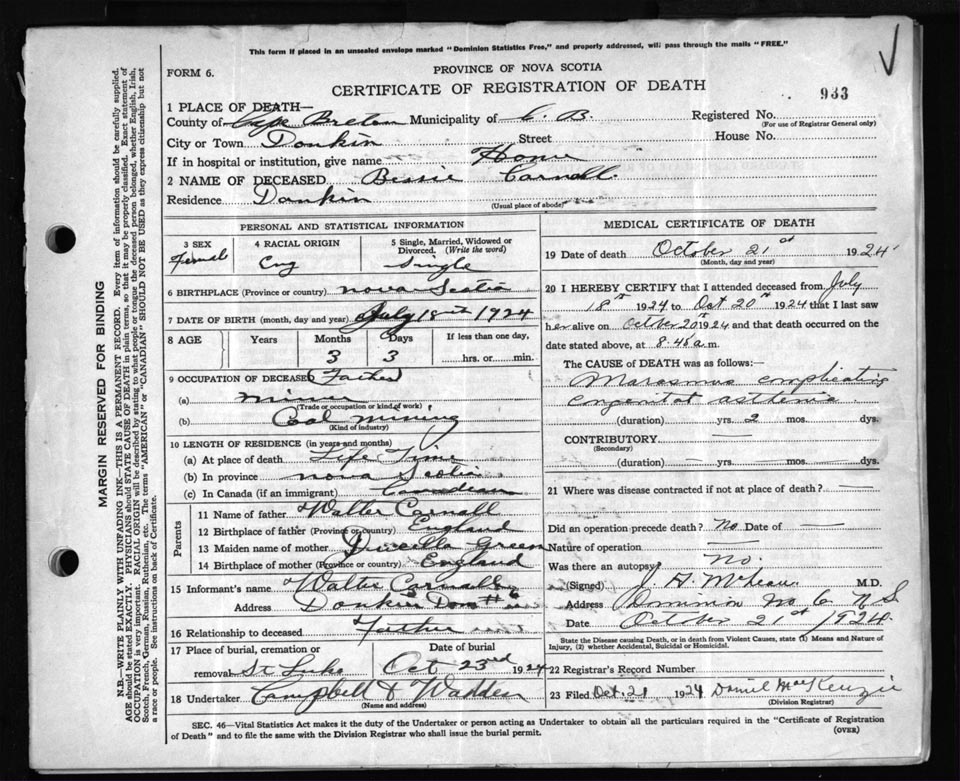 This form if placed in an unsealed envelope marked "Dominion Statistics Free," and properly addressed, will pass through the mails "FREE."
FORM 6.
PROVINCE OF NOVA SCOTIA
CERTIFICATE OF REGISTRATION OF DEATH
933
1 PLACE OF DEATH—
County of Cape Breton Municipality of C. B. Registered No.
(For use of Registrar General only)
City or Town Donkin Street House No.
If in hospital or institution, give name Home
2 NAME OF DECEASED Bessie Carnall
Residence Donkin
(Usual place of abode)
PERSONAL AND STATISTICAL INFORMATION
3 SEX Female
4 RACIAL ORIGIN Eng
5 Single, Married, Widowed or Divorced. (Write the word) Single
6 BIRTHPLACE (Province or country) Nova Scotia
7 DATE OF BIRTH (month, day and year) July 18th 1924
8 AGE Years Months 3 Days 3 If less than one day, hrs. or min.
9 OCCUPATION OF DECEASED Father
(a) Miner
(Trade or occupation or kind of work)
(b) Coal Mining
(Kind of industry)
10 LENGTH OF RESIDENCE (in years and months)
(a) At place of death Life Time
(b) In province Nova Scotia
(c) In Canada (if an immigrant) Canadian
Parents
11 Name of father Walter Carnall
12 Birthplace of father (Province or country) England
13 Maiden name of mother Green
14 Birthplace of mother (Province or country) England
15 Informant's name Walter Carnall
Address Donkin Dom #6
16 Relationship to deceased Father
17 Place of burial, cremation or removal St Luke Date of burial Oct 23rd 1924
18 Undertaker Campbell & Wadden
(Name and address)
MEDICAL CERTIFICATE OF DEATH
19 Date of death October 21st 1924
(Month, day and year)
20 I HEREBY CERTIFY that I attended deceased from July
18th 1924 to Oct 20th 1924 that I last saw
her alive on October 20th 1924 and that death occurred on
date stated above, at 8.45 a.m.
The CAUSE OF DEATH was as follows:
Marasmus complicating
congenital asthenia
(duration) yrs. 2 mos. dys.
CONTRIBUTORY
(Secondary)
(duration) yrs. mos. dys.
21 Where was disease contracted if not at place of death?
Did an operation precede death? No Date of
Nature of operation
Was there an autopsy? No.
(Signed) J. A. McLean M.D.
Address Dominion No 6 N S
Date October 21st 1924
State the Disease causing Death, or in death from Violent Causes, state (1) Means and Nature of Injury, (2) whether Accidental, Suicidal or Homicidal.
22 Registrar's Record Number
23 Filed Oct. 21 1924 Daniel MacKenzie
(Division Registrar)
SEC. 46—Vital Statistics Act makes it the duty of the Undertaker or person acting as Undertaker to obtain all the particulars required in the "Certificate of Registration
of Death" and to file the same with the Division Registrar who shall issue the burial permit.
(OVER)
MARGIN RESERVED FOR BINDING
N.B.—WRITE PLAINLY WITH UNFADING INK—THIS IS A PERMANENT RECORD. Every item of information should be carefully supplied.
AGE should be stated EXACTLY. PHYSICIANS should STATE CAUSE OF DEATH in plain terms, so that it may be properly classified. Exact statement of
OCCUPATION is very important. RACIAL ORIGIN will be described by stating to what people or tongue the deceased person belonged, whether English, Irish,
Scotch, French, German, Russian, Ruthenian, etc. The terms "AMERICAN" or "CANADIAN" SHOULD NOT BE USED as they express citizenship but not
a race or people. See instructions on back of Certificate.